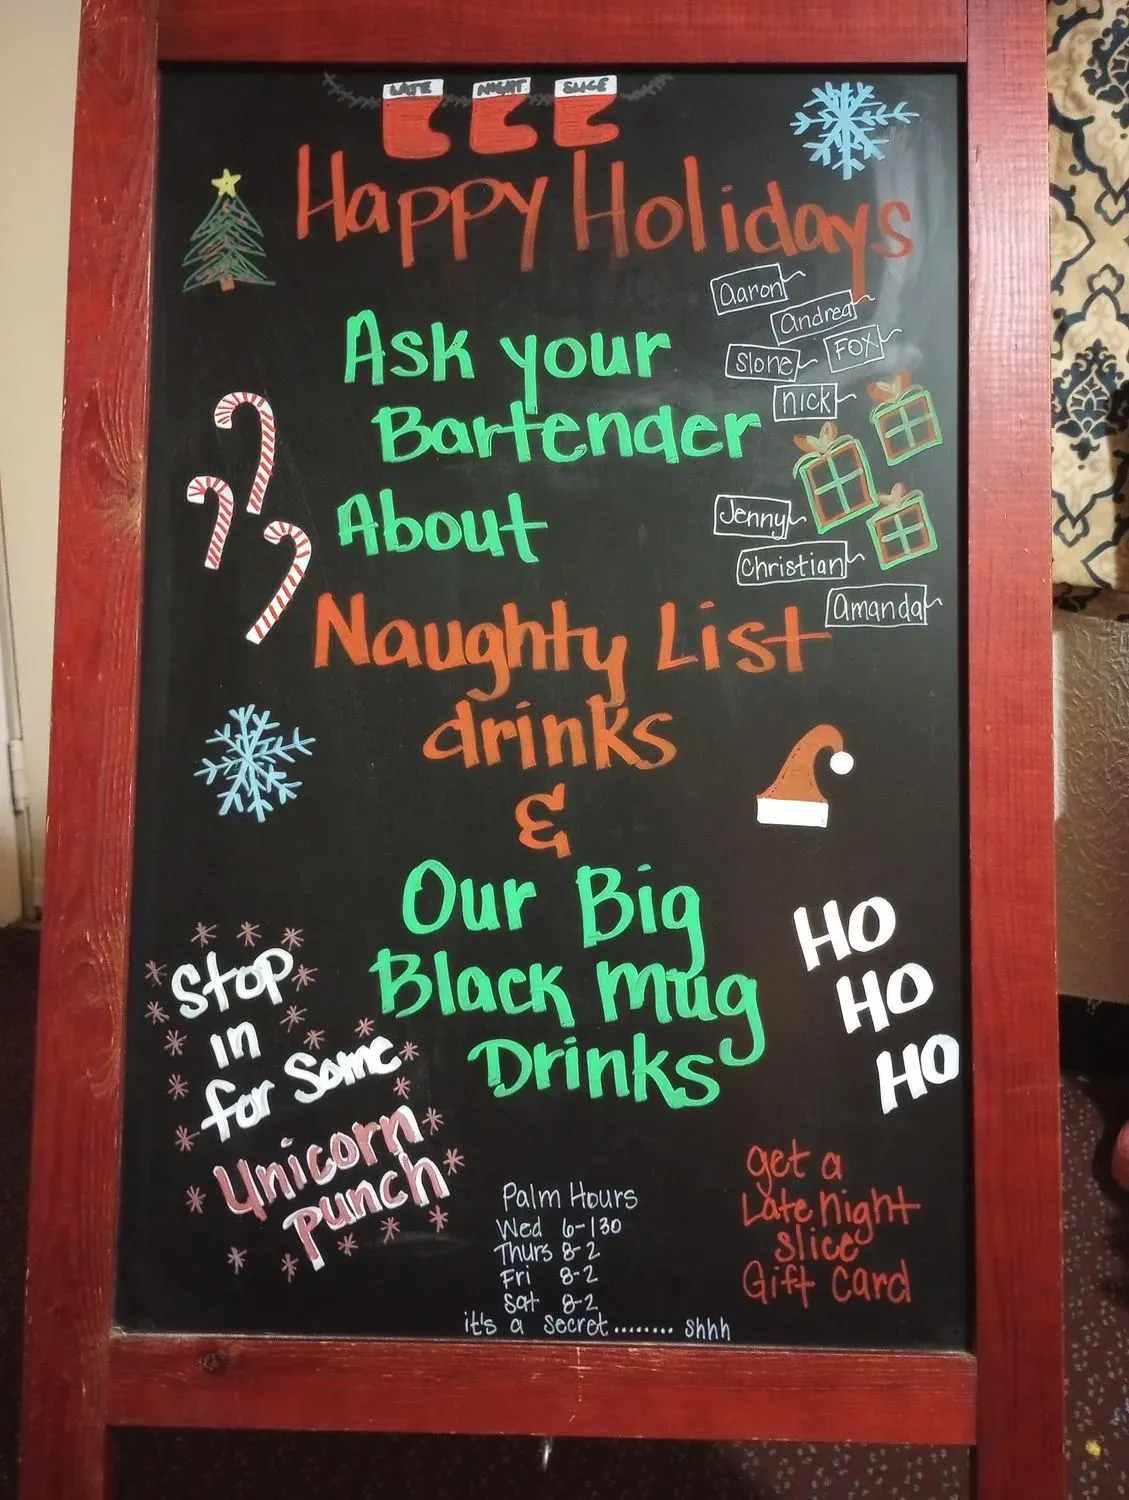 LATE NIGHT SLICE
Happy Holidays
aaron
andrea
Slone
FOX
nick
Ask your
Bartender
About
Jenny
Christian
amanda
Naughty List
drinks
&
Our Big
Black mug
Drinks
HO
HO
HO
Stop
in
for Some
Unicorn
punch
Palm Hours
Wed 6-130
Thurs 8-2
Fri 8-2
Sat 8-2
it's a secret........ shhh
get a
Late night
slice
Gift Card